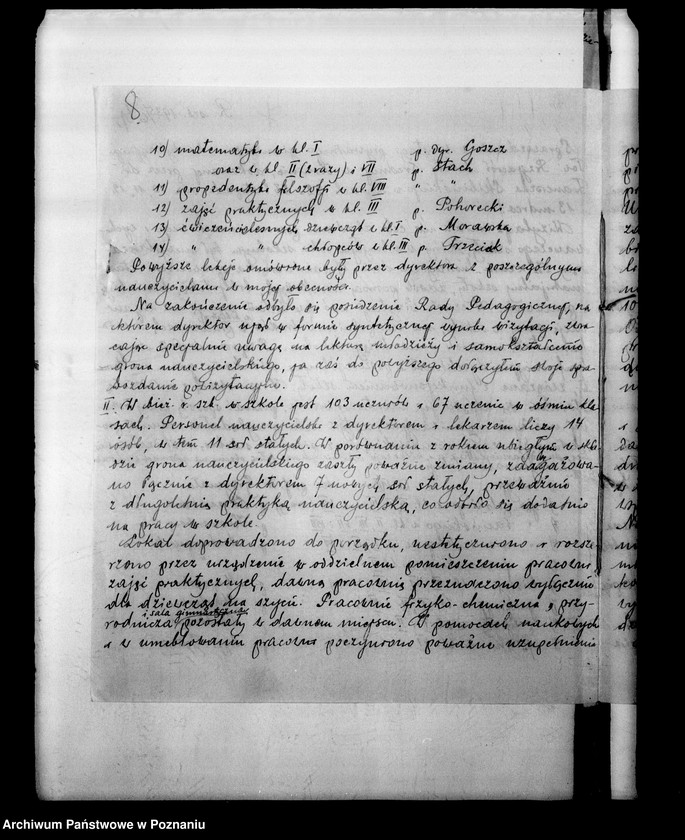 8.
10) matematyki w kl. I p. dyr. Goszcz
oraz w kl. II (2 razy) i VII p. Stach
11) propedeutyki filozofji w kl. VIII " "
12) zajęć praktycznych w kl. III p. Pohorecki
13) ćwiczeń cielesnych dziewcząt w kl. I p. Morawska
14) " " chłopców w kl. III p. Trzeciak
Powyższe lekcje omówione były przez dyrektora z poszczególnymi
nauczycielami w mojej obecności.
Na zakończenie odbyło się posiedzenie Rady Pedagogicznej, na
którem dyrektor ujął w formie syntetycznej wyniki wizytacji, zwra-
cając specjalnie uwagę na lekturę młodzieży i samokształcenie
grona nauczycielskiego, ja zaś do powyższego dołączyłem swoje spra-
wozdanie
II. W bież. r. szk. w szkole jest 103 uczniów i 67 uczenic w ośmiu kla-
sach. Personel nauczycielski z dyrektorem i lekarzem liczy 14
osób, w tem 11 sił stałych. W porównaniu z rokiem ubiegłym w skła-
dzie grona nauczycielskiego zaszły poważne zmiany, zaangażowa-
no łącznie z dyrektorem 7 nowych sił stałych, przeważnie
z długoletnią praktyką nauczycielską, co odbiło się dodatnio
na pracy w szkole.
Lokal doprowadzono do porządku, uestetyczniono i rozsze-
rzono przez urządzenie w oddzielnem pomieszczeniu pracowni
zajęć praktycznych, dawną pracownię przeznaczono wyłącznie
dla dziewcząt na szycie. Pracownie fizyko-chemiczna, przy-
i sala gimnastyczna
rodnicza pozostały w dawnem miejscu. W pomocach naukowych
i w umeblowaniu pracowni poczyniono poważne uzupełnienia
Archiwum Państwowe w Poznaniu